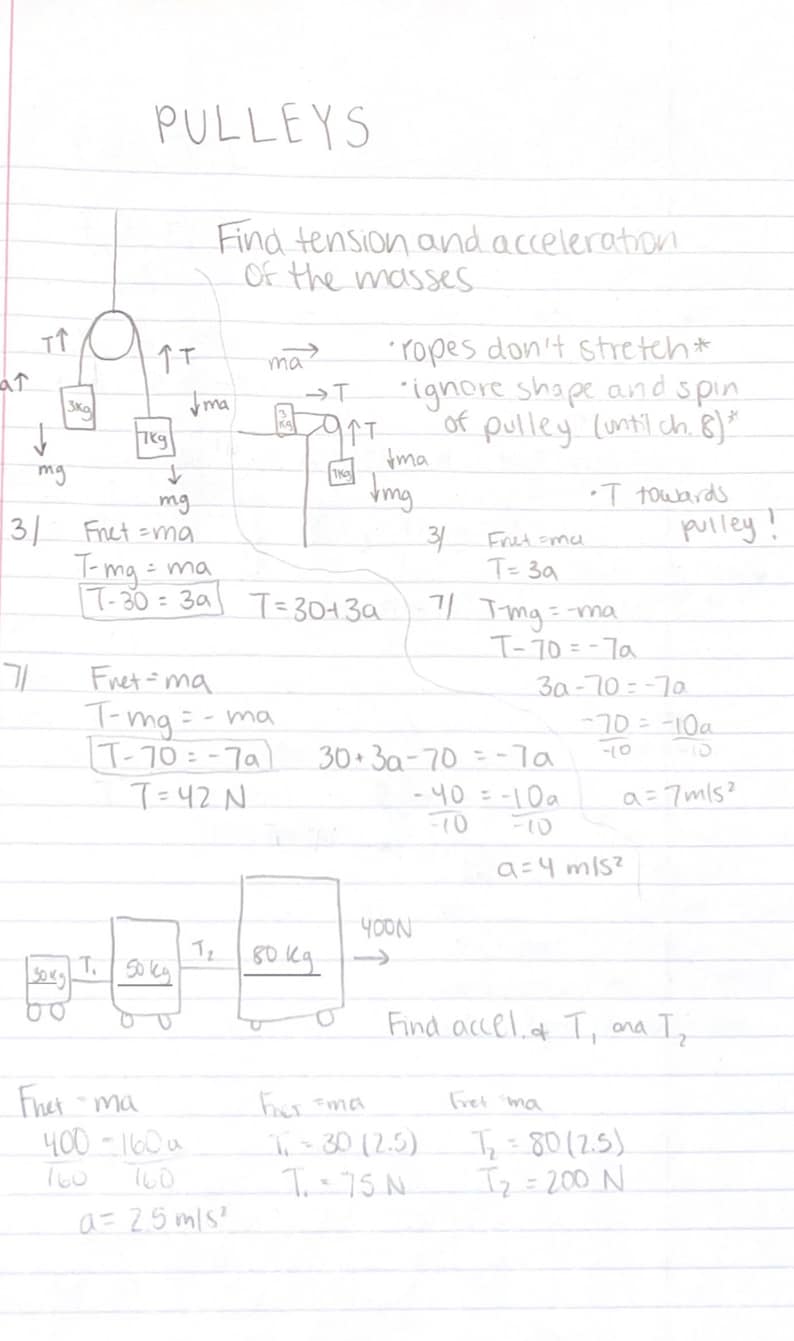 PULLEYS
Find tension and acceleration
of the masses
T↑
↑T
a↑
3kg
7kg
↓ma
↓
mg
↓
mg
ma→
→T
3
kg
↑T
7kg
↓ma
↓mg
·ropes don't stretch*
·ignore shape and spin
of pulley (until ch. 8)*
·T towards
pulley!
3/ Fnet = ma
T-mg = ma
T-30 = 3a T=30+3a
7/ Fnet = ma
T-mg = -ma
T-70 = -7a 30+3a-70 = -7a
T=42 N -40 = -10a
-10 -10
a=4 m/s²
3/ Fnet = ma
T=3a
7/ T-mg = -ma
T-70 = -7a
3a-70 = -7a
-70 = -10a
-10 -10
a=7m/s²
30kg T₁ 50kg T₂ 80kg 400N
→
Find accel. & T₁ and T₂
Fnet = ma
400 = 160a
160 160
a= 2.5 m/s²
Fnet = ma
T₁ = 30(2.5)
T₁ = 75 N
Fnet = ma
T₂ = 80(2.5)
T₂ = 200 N